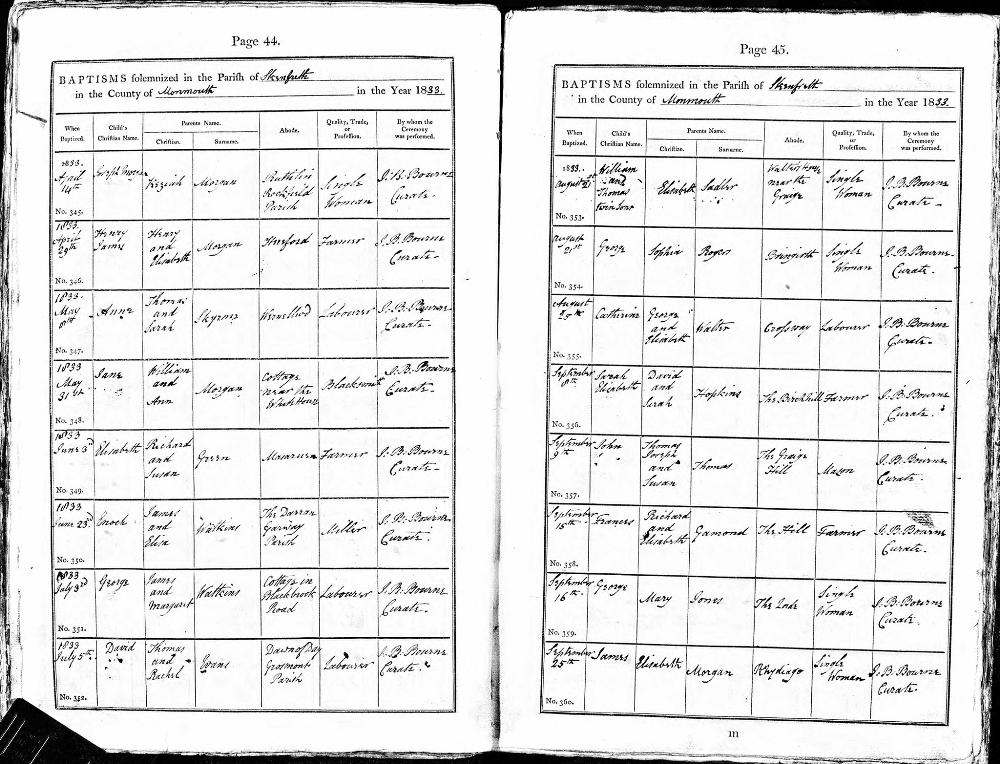 Page 44.
BAPTISMS solemnized in the Parish of Skenfreth
in the County of Monmouth in the Year 1833.
When Baptized. Child's Christian Name. Parents Name. Christian. Surname. Abode. Quality, Trade, or Profession. By whom the Ceremony was performed.
1833. April 14th Joseph Keziah Morgan Rockfield Parish Single Woman J. B. Bourne Curate.
No. 345.
1833. April 29th Henry James Henry and Elisabeth Morgan Farmer J. B. Bourne Curate.
No. 346.
1833. May Anne Thomas and Sarah Skyrme Labourer J. B. Bourne Curate.
No. 347.
1833 May 31st Jane William and Ann Morgan Cottage near the White House Blacksmith J. B. Bourne Curate.
No. 348.
1833 June 3d Elisabeth Richard and Susan Green Farmer J. B. Bourne Curate.
No. 349.
1833 June 23d Enoch James and Eliza Watkins The Darran Garway Parish Miller J. B. Bourne Curate.
No. 350.
1833 July 3rd George James and Margaret Watkins Cottage in Blackbrook Road Labourer J. B. Bourne Curate.
No. 351.
1833 July 5th. David Thomas and Rachel Evans Dawn of Day Grosmont Parish Labourer J. B. Bourne Curate.
No. 352.
Page 45.
BAPTISMS solemnized in the Parish of Skenfreth
in the County of Monmouth in the Year 1833.
When Baptized. Child's Christian Name. Parents Name. Christian. Surname. Abode. Quality, Trade, or Profession. By whom the Ceremony was performed.
1833. August William and Thomas twin sons Elisabeth Sadler near the Graige Single Woman J. B. Bourne Curate
No. 353.
August 21st George Sophia Rogers Single Woman J. B. Bourne Curate.
No. 354.
August 25th Catherine George and Elisabeth Walter Crossway Labourer J. B. Bourne Curate.
No. 355.
September 8th Sarah Elisabeth David and Sarah Hopkins The Birchhill Farmer J. B. Bourne Curate.
No. 356.
September 9th John Thomas Joseph and Susan Thomas The Graige Hill Mason J. B. Bourne Curate.
No. 357.
September 15th Frances Richard and Elisabeth Gamond The Hill Farmer J. B. Bourne Curate.
No. 358.
September 16th George Mary Jones The Lade Single Woman J. B. Bourne Curate.
No. 359.
September 25th James Elisabeth Morgan Rhydiago Single Woman J. B. Bourne Curate.
No. 360.
m